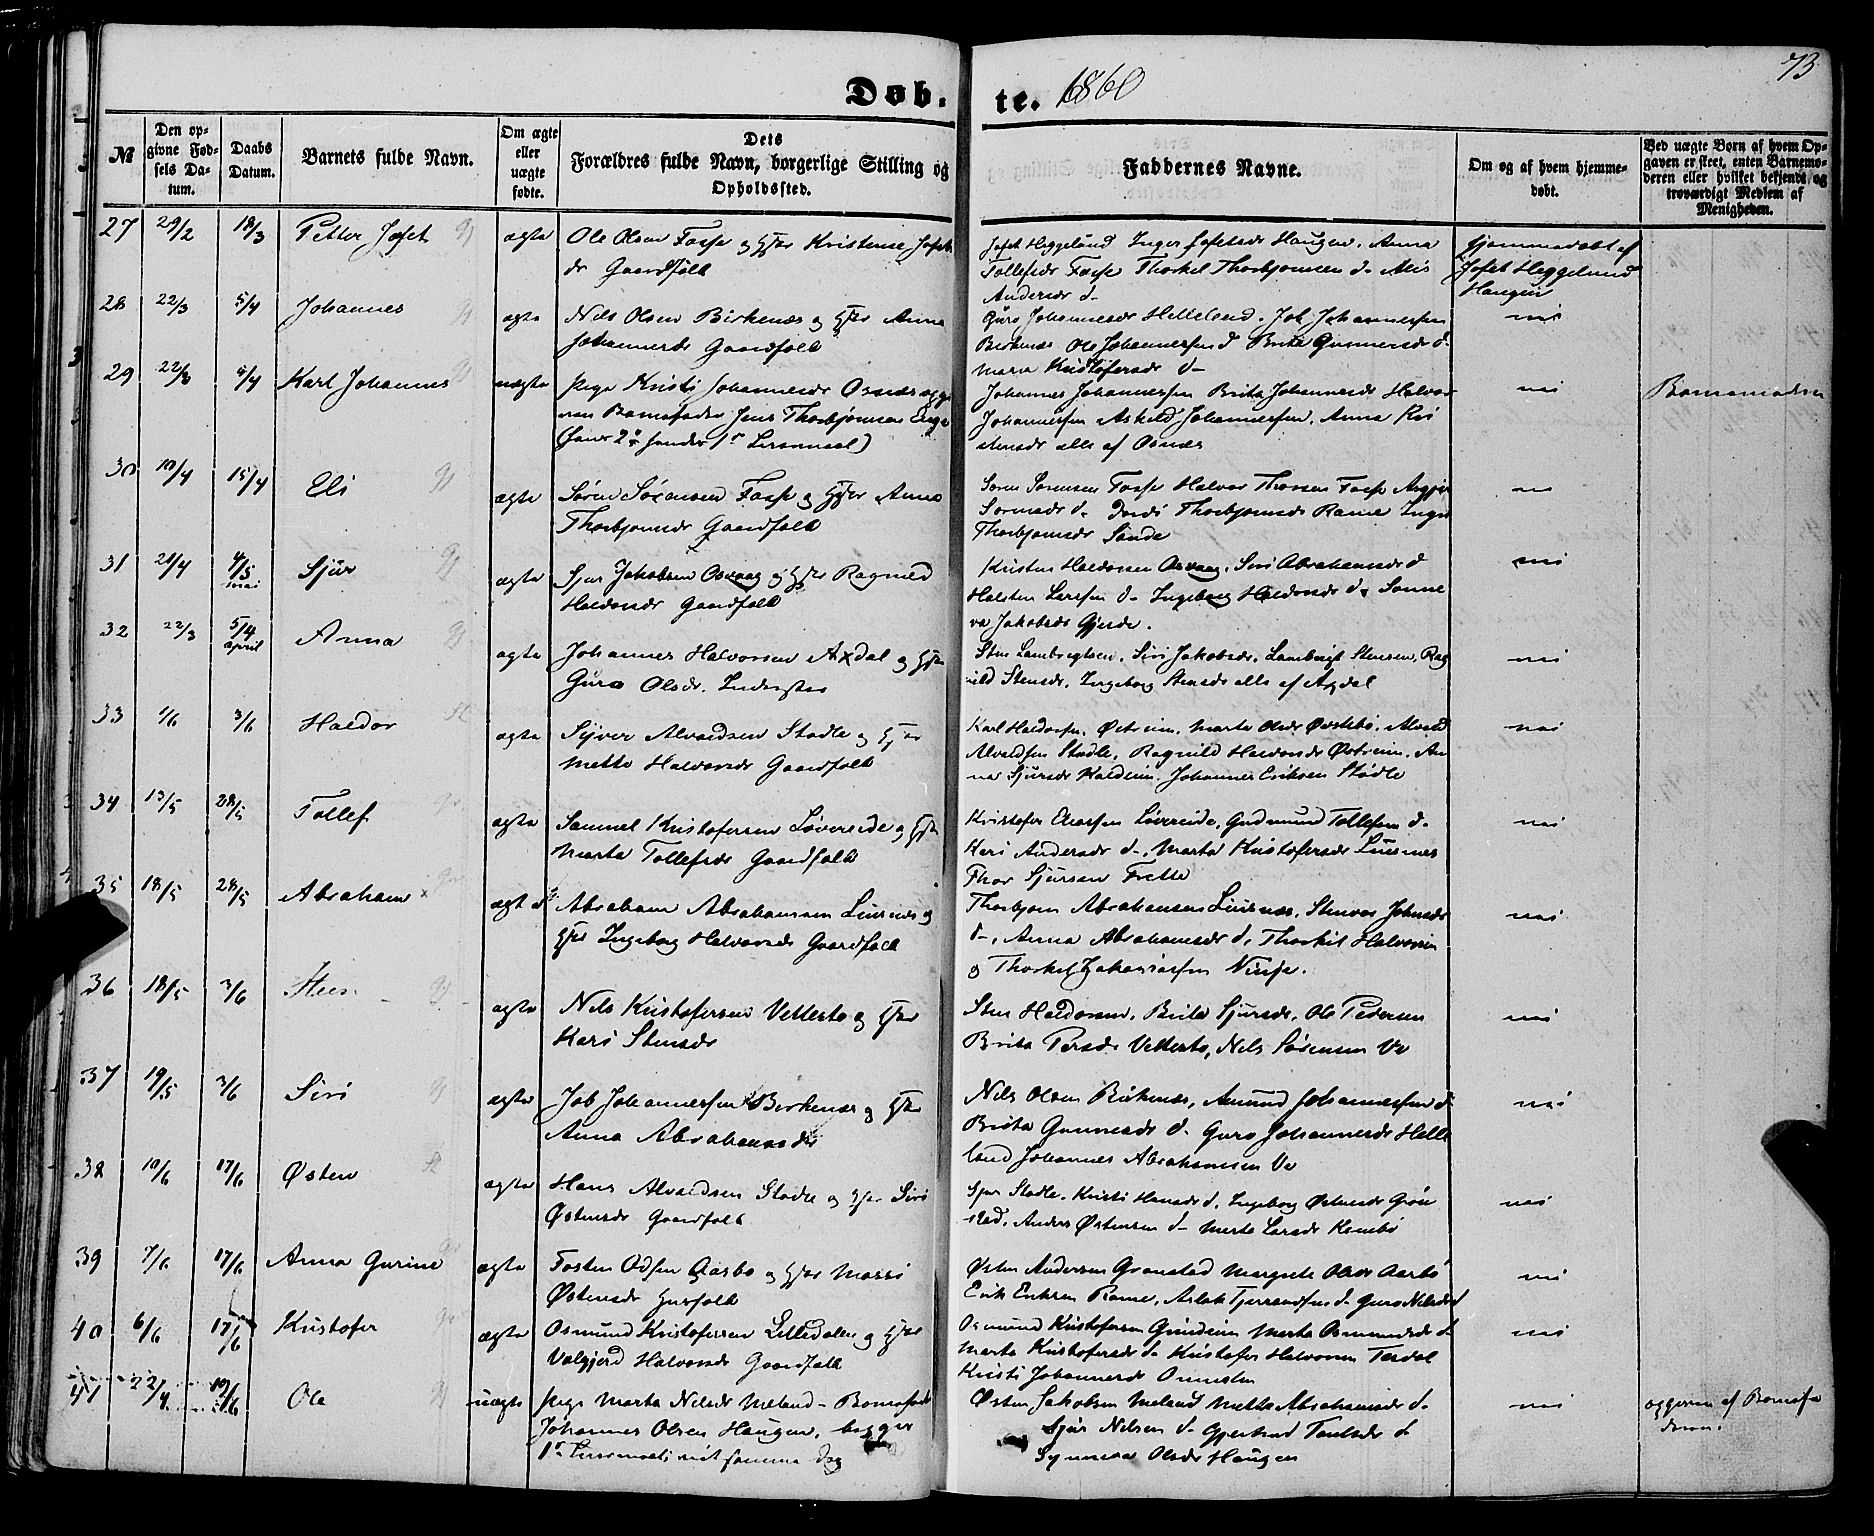 73
Døb- te. 1860
№
Den op-
givne Fød-
sels Da-
tum.
Daabs
Datum.
Barnets fulde Navn.
Om ægte
eller
uægte
fødte.
Dets
Forældres fulde Navn, borgerlige Stilling og
Opholdssted.
Faddernes Navne.
Om og af hvem hjemme-
døbt.
Ved uægte Børn af hvem Op-
gaven er skeet, enten Barnemo-
deren eller hvilket bekjendt og
troværdigt Medlem af
Menigheden.
27 29/2 18/3 Petter Josef ægte Ole Olsen Fosse og Hstr Kristense Josefs
dr Gaardfolk
Josef Heggelund Inger Josefsdr Haugen. Anna
Tollefsdr Fosse Thorkel Thorbjørnsen d-
Andersdr d-
Hjemmedøbt af
Josef Heggelund
Haugen
28 22/3 5/4 Johannes ægte Nils Olsen Birkenæs og Hstr Anna
Johannesdr Gaardfolk
Guro Johannesdr Helleland. Job Johannessen
Birkenæs Ole Johannessen d Brita Gunnersdr d-
Maria Kristofersdr d-
nei
29 22/3 5/4 Karl Johannes uægte Pige Kristi Johannesdr Osnæs
Barnefader Jens Thorbjørnsen
(hans 2n hendes 1n Leiermaal)
Johannes Johannessen Brita Johannesdr Halvor
Johannessen Askild Johannessen, Anna Kri
stensdr alle af Osnæs
nei Barnemoderen
30 10/4 15/4 Eli ægte Søren Sørensen Fosse og Hstr Anna
Thorbjørnsdr Gaardfolk
Søren Sørensen Fosse Halvor Thorsen Fosse
Sørensdr d- Thorbjørnsdr Rame Inger
Thorbjørnsdr Sande
nei
31 21/4 4/5 mai Sjur ægte Sjur Jakobsen Osvaag og Hstr Ragnild
Haldorsdr Gaardfolk
Kristen Haldorsen Osvaag. Siri Abrahamsdr d
Halsten Larsen d- Ingeborg Haldorsdr d. Sønne
va Jakobsdr Gjerde.
nei
32 22/3 5/4 april Anna ægte Johannes Halvorsen Axdal og Hstr
Guro Olsdr. Inderster
Sten Lambregtsen, Siri Jakobsdr, Lambregt Stensen, Rag
nild Stensdr, Ingeborg Stensdr alle af Axdal
nei
33 1/6 3/6 Haldor ægte Syver Alvaldsen Stødle og Hstr
Mette Halvorsdr Gaardfolk
Karl Haldorsen, Østreim, Marta Olsdr Øvstebø, Alvald
Alvaldsen Stødle, Ragnild Halvorsdr Østreim, An
na Sjursdr Haldeim. Johannes Eriksen Stødle
nei
34 13/5 28/5 Tollef ægte Samuel Kristofersen Løvereide og Hstr
Marta Tollefsdr Gaardfolk
Kristofer Eliassen Løvereide, Gudmund Tollefsen d-
Kari Andersdr d-, Marta Kristofersdr Lusnæs
Thor Sjursen Frette
nei
35 18/5 28/5 Abraham × ægte Abraham Abrahamsen Lusnæs og
Hstr Ingeborg Halvorsdr Gaardfolk
Thorbjørn Abrahamsen Lusnæs, Stenvor Johnsdr
d-, Anna Abrahamsdr d, Thorkil Halvorsen
og Thorkel Zakariassen
nei
36 18/5 3/6 Steen ægte Nils Kristofersen Vettestø og Hstr
Kari Stensdr
Sten Haldorsen, Brita Sjursdr, Ole Pedersen
Brita Persdr Vettestø, Nils Sørensen
nei
37 19/5 3/6 Siri ægte Job Johannessen Birkenæs og Hstr
Anna Abrahamsdr
Nils Olsen Birkenæs, Amund Johannessen d-
Brita Gunnersdr d- Guro Johannesdr Helle
land Johannes Abrahamsen
nei
38 10/6 17/6 Østen ægte Hans Alvaldsen Stødle og Hstr Siri
Østensdr Gaardfolk
Sjur Stødle. Kristi Hansdr d, Ingeborg Østensdr Grøn
stad, Anders Østensen d- Marta Larsdr
nei
39 7/6 17/6 Anna Gurine ægte Tosten Odsen Aarbø og Hstr
Østensdr Husfolk
Østen Andersen Grønstad Margrete Olsdr Aarbø
Erik Eriksen Rame, Aslak d- Guro Nilsdr d
nei
40 6/6 17/6 Kristofer ægte Osmund Kristofersen Litledalen og Hstr
Valgjerd Halvorsdr Gaardfolk
Osmund Kristofersen Grindeim Marta Osmundsdr d-
Marta Kristofersdr d- Kristofer Halvorsen Tesdal
Kristi Johannesdr
nei
41 22/4 10/6 Ole uægte Pige Marta Nilsdr Meland - Barnefader
Johannes Olsen Haugen, begges
1ste Leiermaal; viet samme Dag
Østen Jakobsen Meland Mette Abrahamsdr d-
Sjur Nilsen d- Gjertrud d
Synneva Olsdr Haugen
nei opgiven af Barnefa
deren.